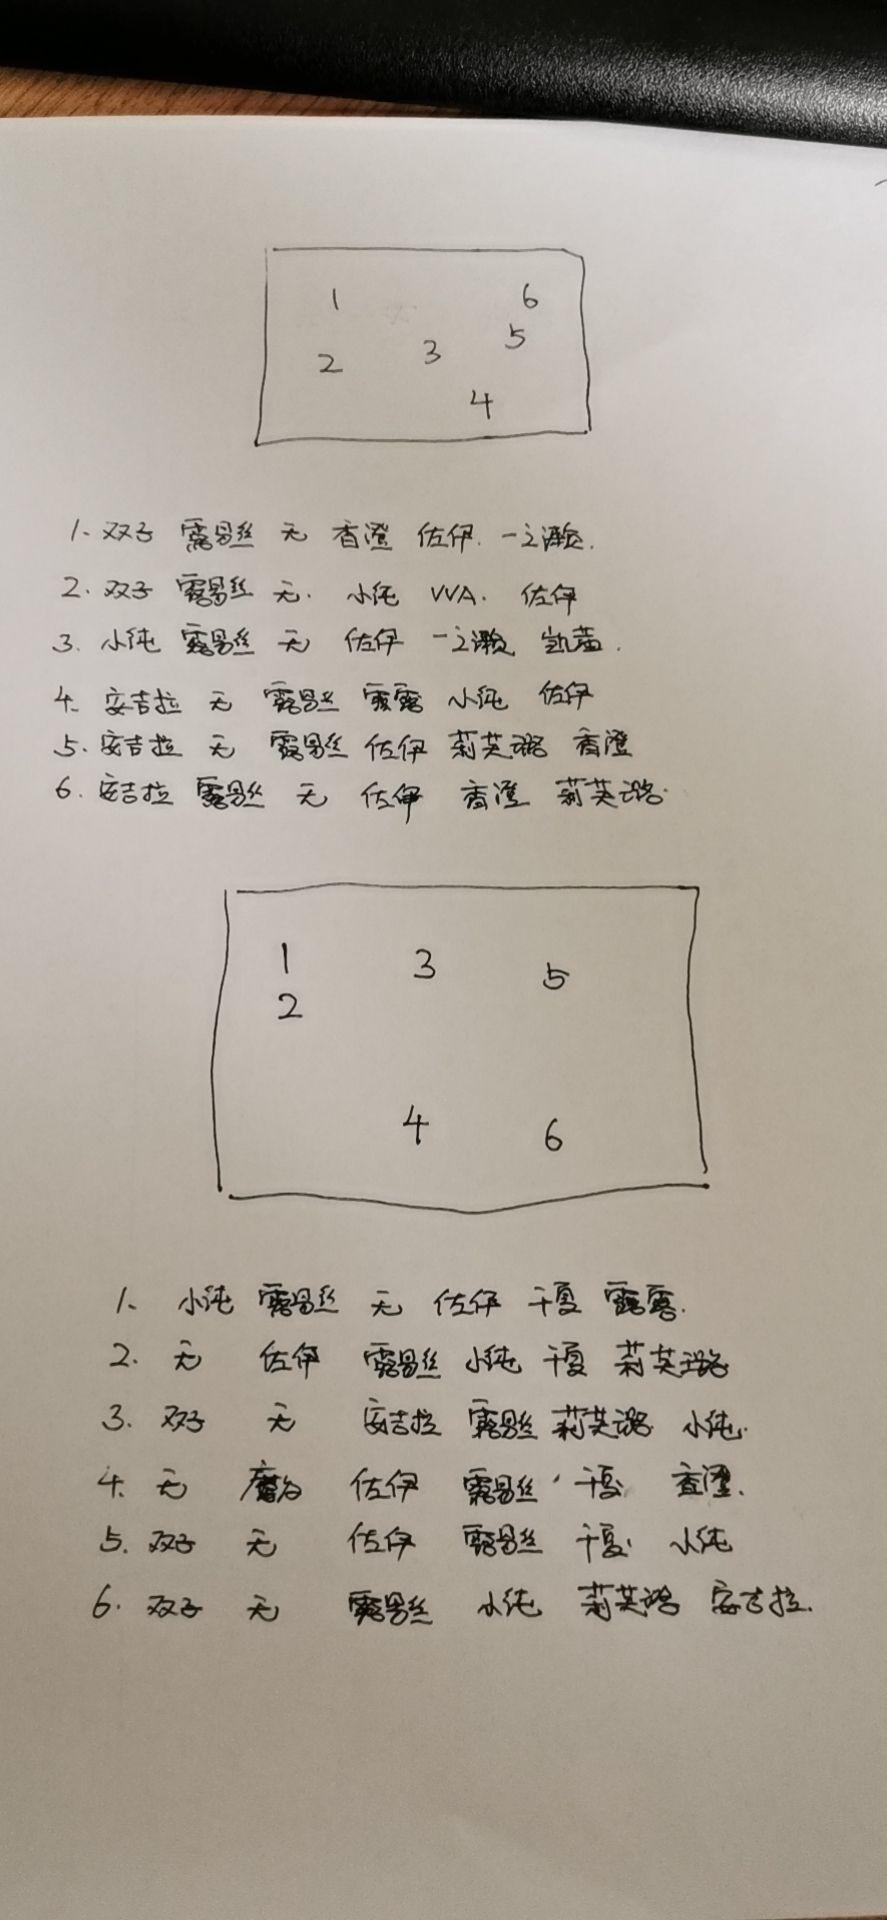 1 6
5
2 3
4
1. 双子 露易丝 无 香澄 佐伊. 一之濑.
2. 双子 露易丝 无. 小纯 VVA. 佐伊
3. 小纯 露易丝 无 佐伊 一之濑 凯茜.
4. 安吉拉 无 露易丝 露露 小纯 佐伊
5. 安吉拉 无 露易丝 佐伊 莉芙璐 香澄
6. 安吉拉 露易丝 无 佐伊 香澄 莉芙璐.
1 3 5
2
4 6
1. 小纯 露易丝 无 佐伊 千夏 露露.
2. 无 佐伊 露易丝 小纯 千夏 莉芙璐
3. 双子 无 安吉拉 露易丝 莉芙璐 小纯.
4. 无 佐伊 露易丝 千夏 香澄.
5. 双子 无 佐伊 露易丝 千夏 小纯
6. 双子 无 露易丝 小纯 莉芙璐 安吉拉.